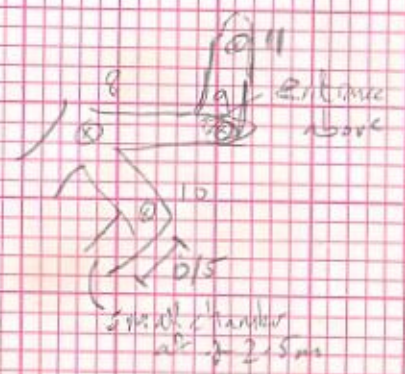 11
8
9
Entrance
above
10
0/5
small chamber
at 2.5m